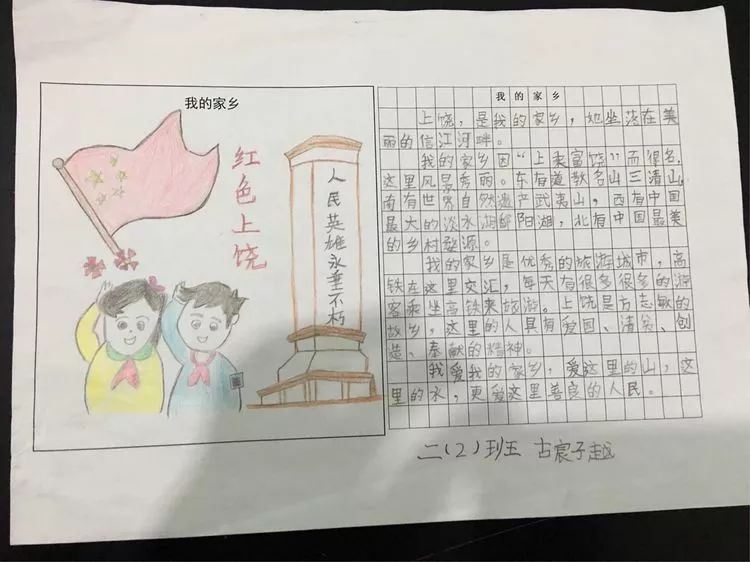 我的家乡
红色上饶
人民英雄永垂不朽
我的家乡
上饶，是我的家乡，她坐落在美
丽的信江河畔。
我的家乡因“上乘富饶”而得名，
这里风景秀丽。东有道教名山三清山，
南有世界自然遗产武夷山，西有中国
最大的淡水湖鄱阳湖，北有中国最美
的乡村婺源。
我的家乡是优秀的旅游城市，高
铁在这里交汇，每天有很多很多的游
客乘坐高铁来旅游。上饶是方志敏的
故乡，这里的人具有爱国、清贫、创
造、奉献的精神。
我爱我的家乡，爱这里的山，这
里的水，更爱这里善良的人民。
二（2）班 古宸子越